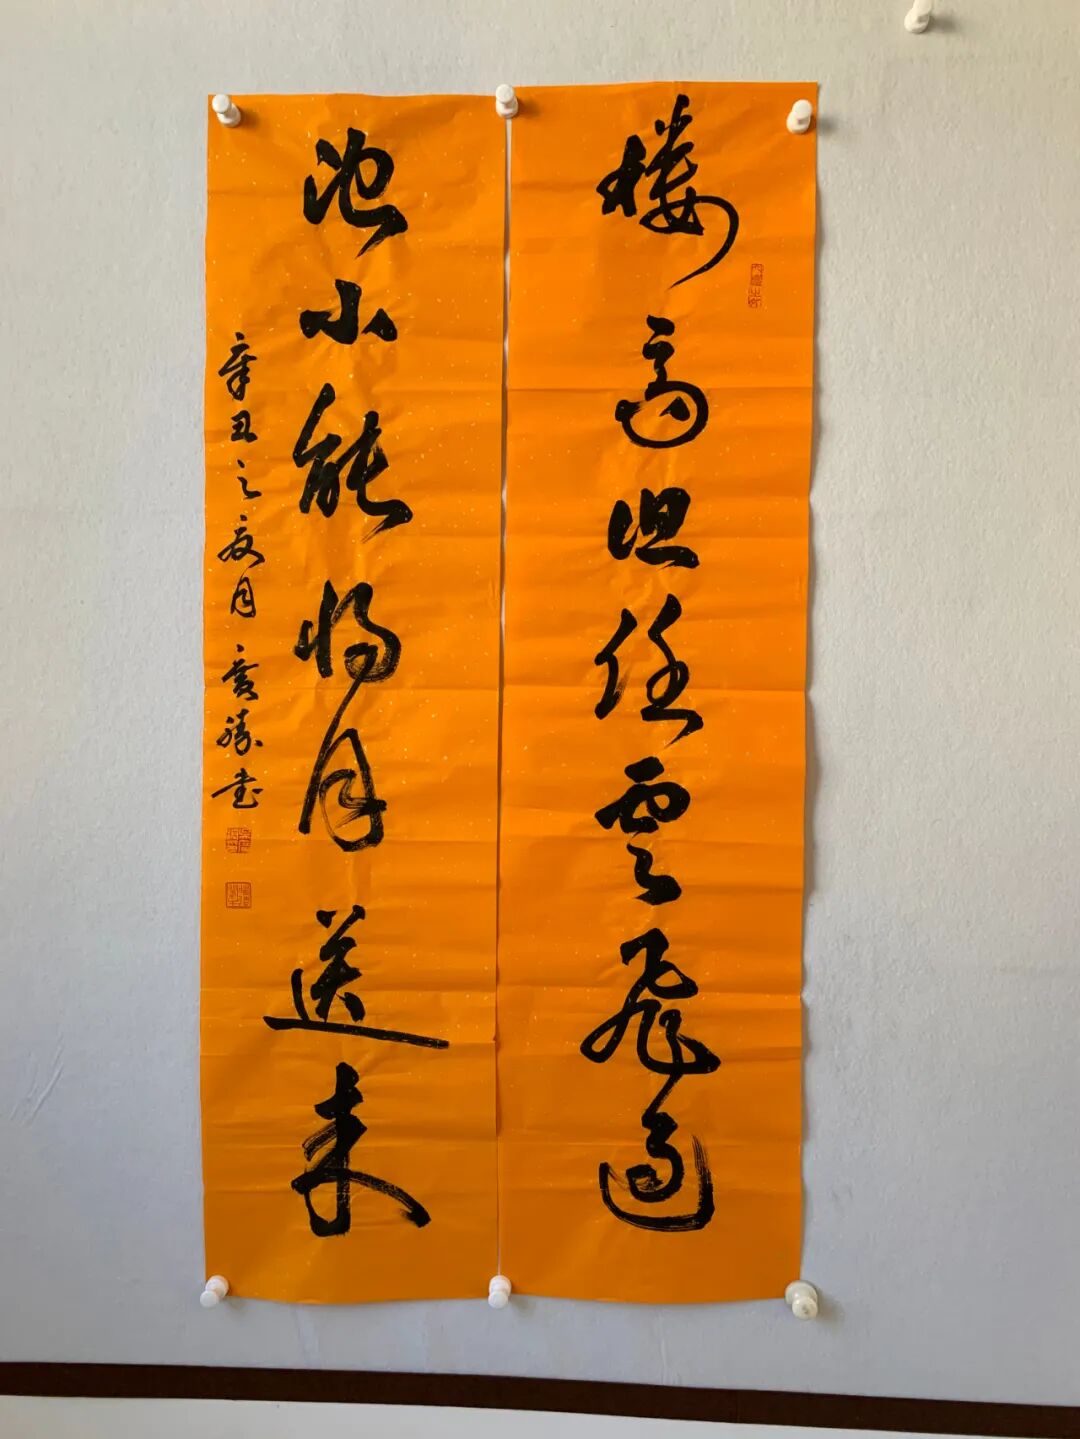 樓高但任雲飛過
池小能将月送来
辛丑之夏月勝書